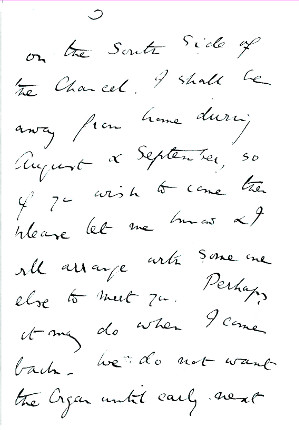 on the South Side of
the Chancel. I shall be
away from home during
August & September, so
if you wish to come then
please let me know & I
will arrange with some one
else to meet you. Perhaps
it may do when I come
back. We do not want
the Organ until early next